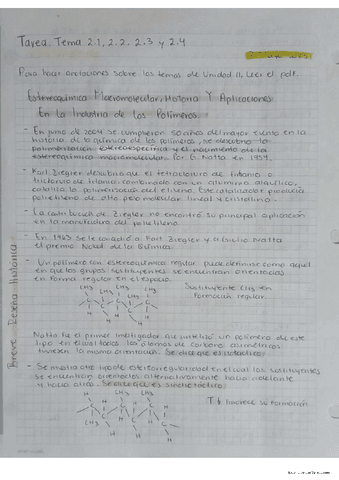 Tarea Tema 2.1, 2.2. 2.3 y 2.4
Para hacer anotaciones sobre los temas de Unidad II, Leer el pdf.
Estereoquímica Macromolecular, Historia Y Aplicaciones
En la Industria de los Polímeros.
- En junio de 2004 se cumplieron 50 años del mayor evento en la
historia de la química de los polímeros, se descubrio la
polimerización estereoespecifica y el nacimiento de la
estereoquímica macromolecular. Por G. Natta en 1954.
- Karl Ziegler descubrio que el tetracloruro de titanio o
tricloruro de titanio combinado con un aluminio alquílico,
cataliza la polimerización del etileno. Este catalizador producia
polietileno de alto peso molecular lineal y cristalino.
- La contribución de Ziegler no encontró su principal aplicación
en la manufactura del polietileno.
- En 1963 se le concedió a Karl Ziegler y a Giulio Natta
el premio Nobel de la Química.
- Un polímero con estereoquímica regular puede definirse como aquel
en que los grupos sustituyentes se encuentran orientados
en forma regular en el espacio.
CH3 CH3 CH3
Sustituyente CH3 en
Formación regular.
H H H
Natta fue el primer investigador que sintetizó un polímero de este
tipo en el cual todos los átomos de carbono asimétricos
tuviesen la misma orientación. Se dice que es isotáctico.
- Se mostro otro tipo de estereorregularidad en el cual los sustituyentes
se encuentran orientados alternativamente hacia adelante
y hacia atrás. Se dice que es sindiotáctico.
H CH3 H CH3 H
favorece su Formación
Breve Reseña Historica